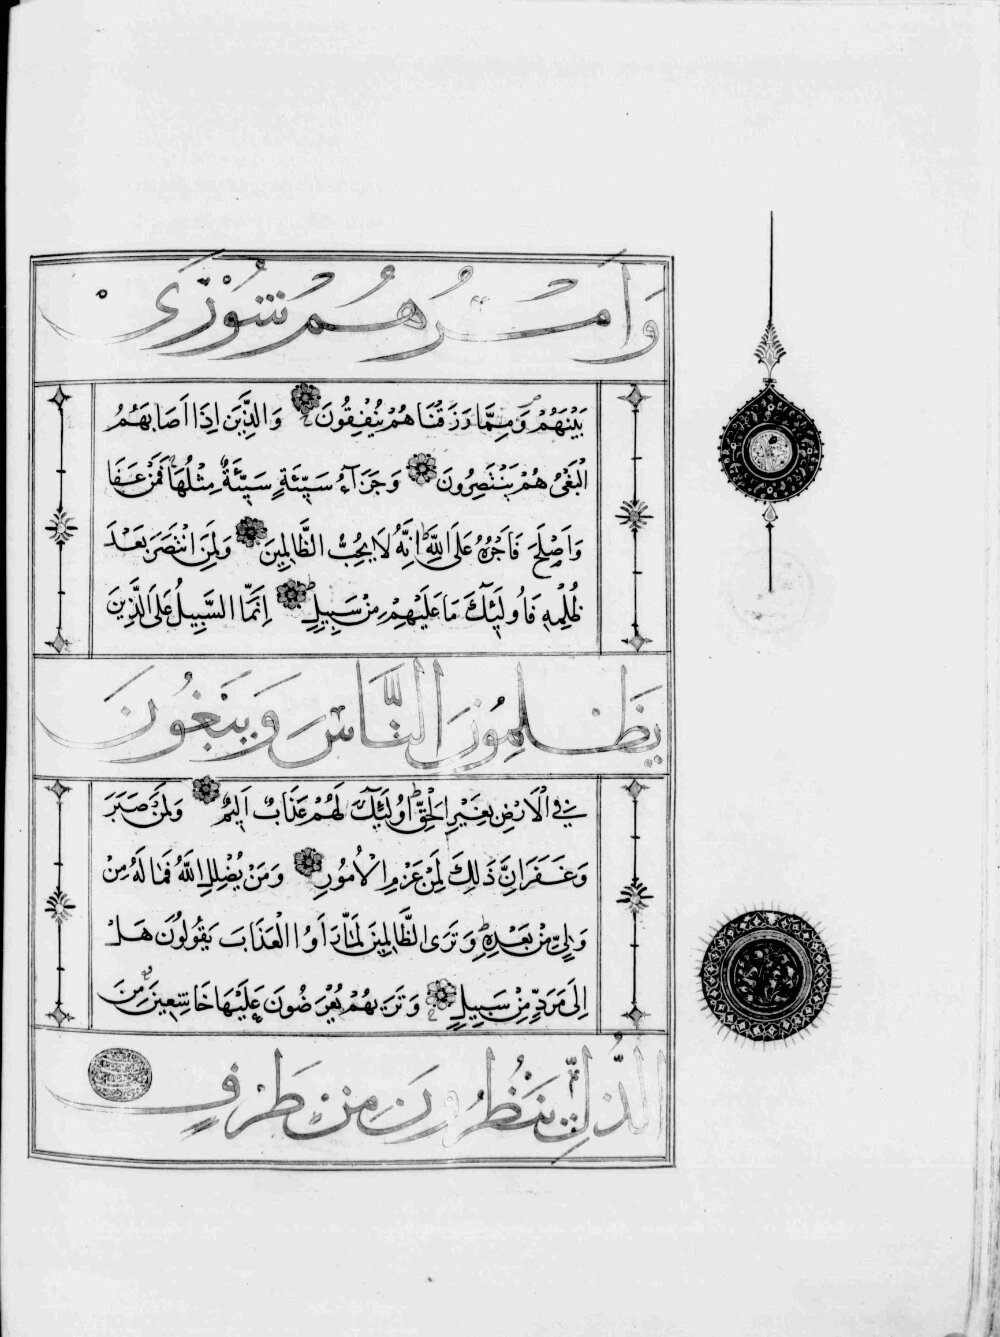 وَأَمْرُهُمْ شُورَىٰ
بَيْنَهُمْ وَمِمَّا رَزَقْنَاهُمْ يُنْفِقُونَ وَالَّذِينَ اِذَا اَصَابَهُمُ
الْبَغْىُ هُمْ يَنْتَصِرُونَ وَجَزَآءُ سَيِّئَةٍ سَيِّئَةٌ مِثْلُهَا فَمَنْ عَفَا
وَاَصْلَحَ فَاَجْرُهُ عَلَى اللّٰهِ اِنَّهُ لَا يُحِبُّ الظَّالِمِينَ وَلَمَنِ انْتَصَرَ بَعْدَ
ظُلْمِهِ فَاُولَٓئِكَ مَا عَلَيْهِمْ مِنْ سَبِيلٍ اِنَّمَا السَّبِيلُ عَلَى الَّذِينَ
يَظْلِمُونَ النَّاسَ وَيَبْغُونَ
فِى الْاَرْضِ بِغَيْرِ الْحَقِّ اُولَٓئِكَ لَهُمْ عَذَابٌ اَلِيمٌ وَلَمَنْ صَبَرَ
وَغَفَرَ اِنَّ ذَلِكَ لَمِنْ عَزْمِ الْاُمُورِ وَمَنْ يُضْلِلِ اللّٰهُ فَمَا لَهُ مِنْ
وَلِىٍّ مِنْ بَعْدِهِ وَتَرَى الظَّالِمِينَ لَمَّا رَاَوُا الْعَذَابَ يَقُولُونَ هَلْ
اِلَى مَرَدٍّ مِنْ سَبِيلٍ وَتَرَيهُمْ يُعْرَضُونَ عَلَيْهَا خَاشِعِينَ مِنَ
الذُّلِّ يَنْظُرُونَ مِنْ طَرْفٍ